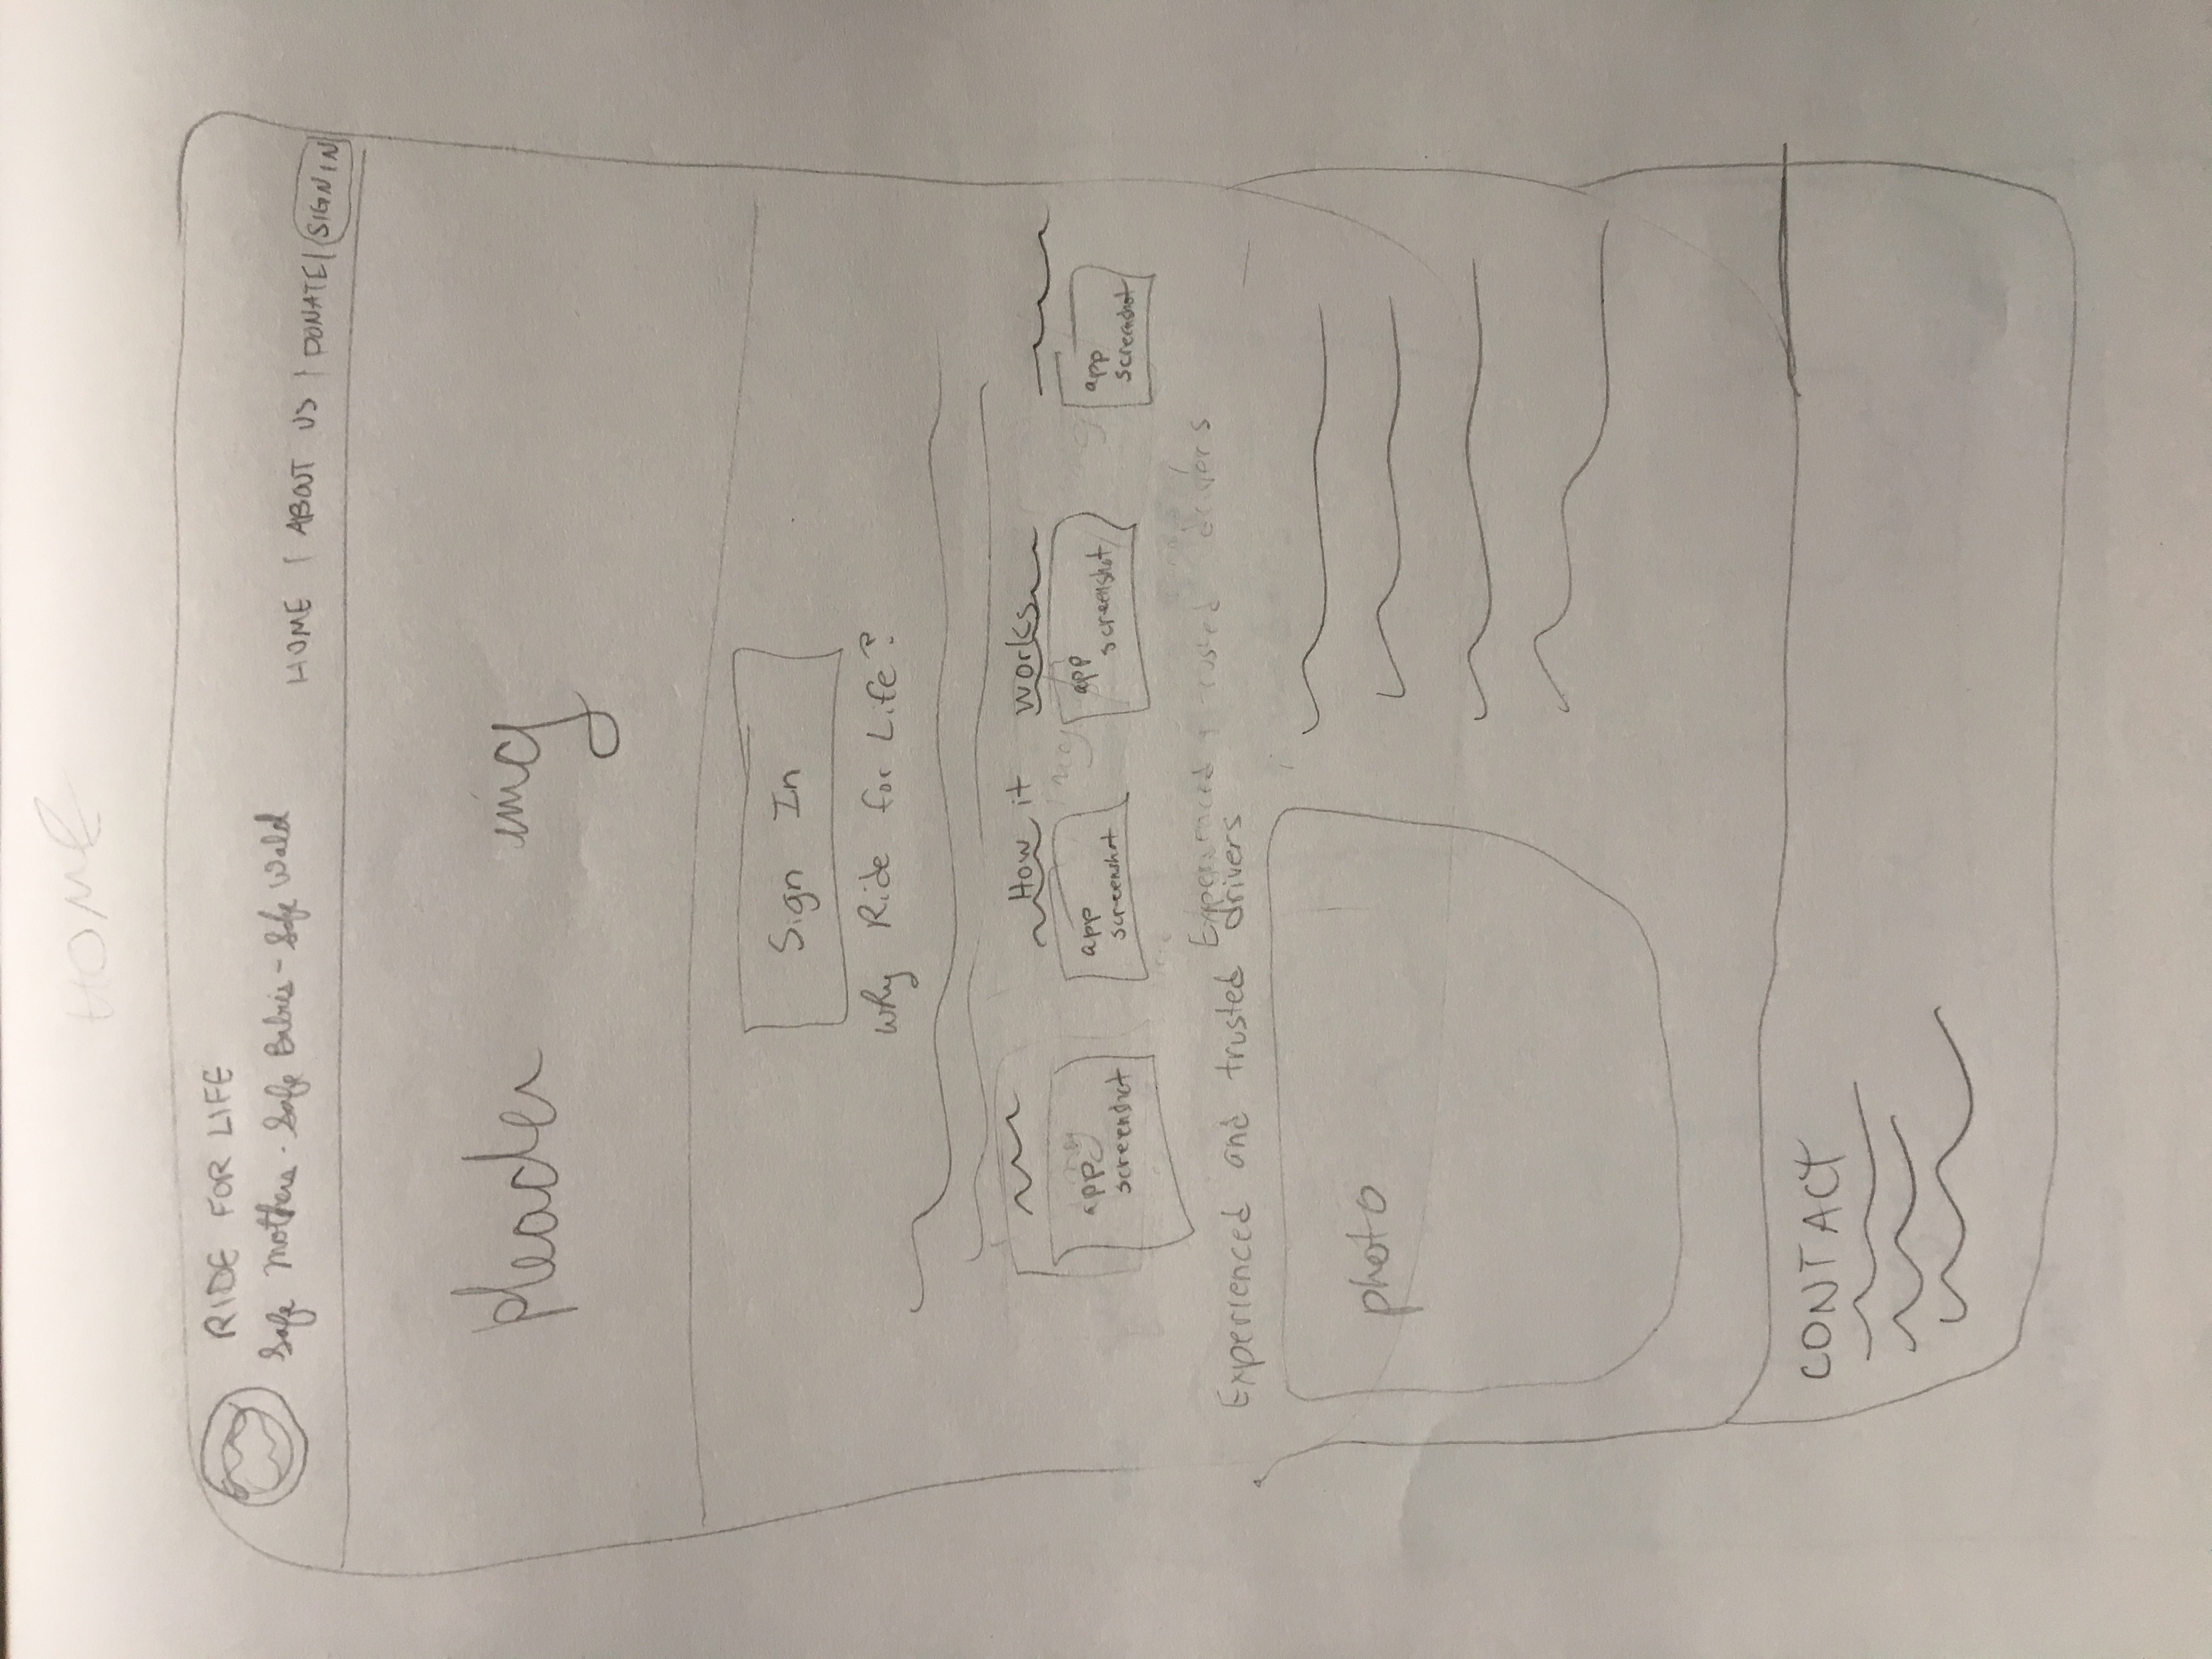 HOME
RIDE FOR LIFE
Safe Mothers - Safe Babies - Safe World
HOME | ABOUT US | DONATE | SIGN IN
Header img
Sign In
Why Ride for Life?
How it works
app screenshot
app screenshot
app screenshot
app screenshot
Experienced & trusted drivers
Experienced and trusted drivers
photo
CONTACT